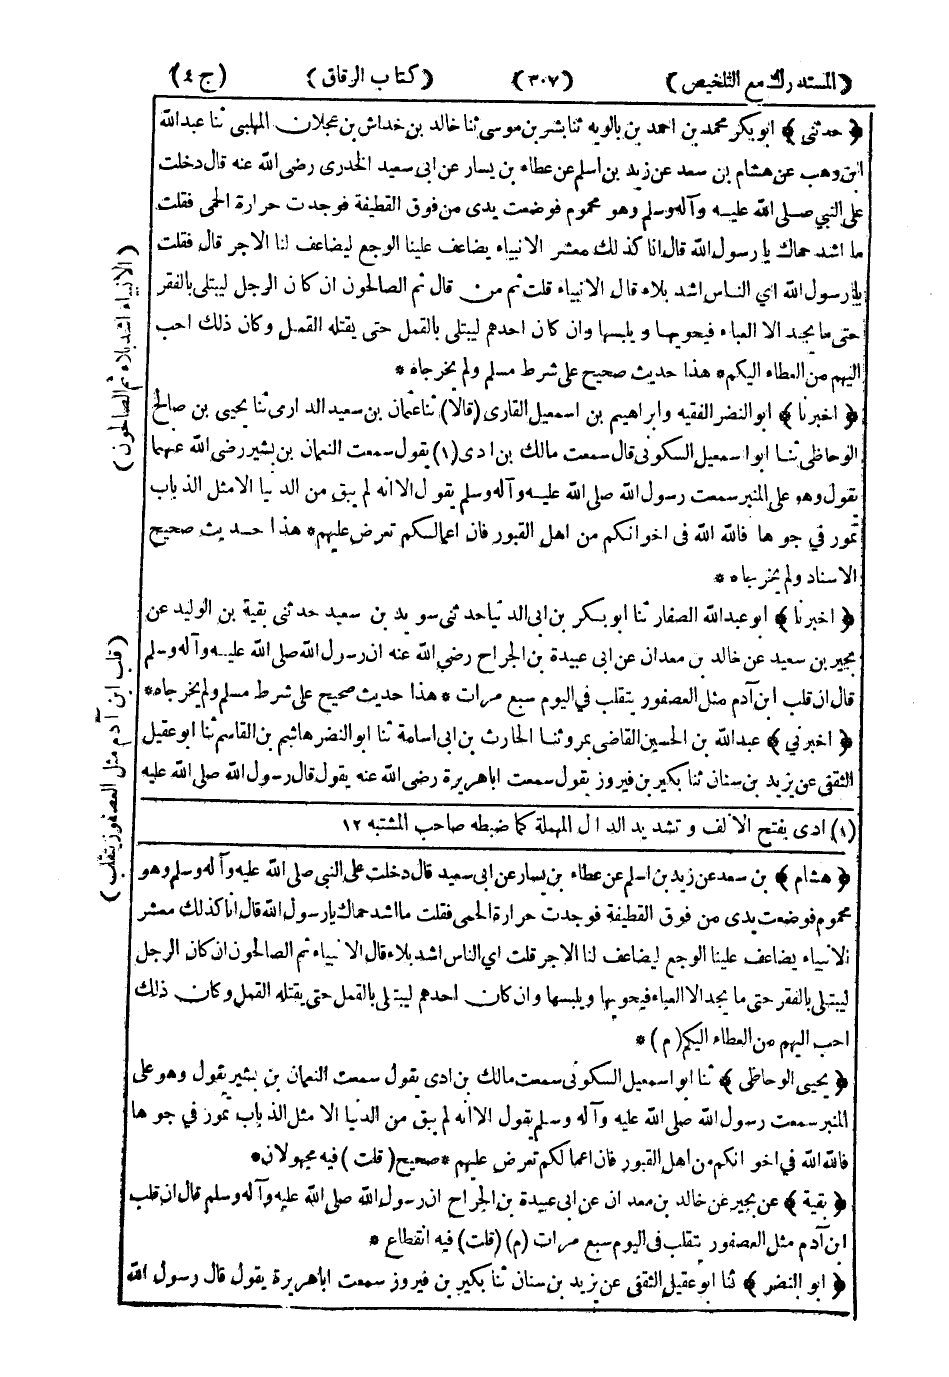 (المستدرك مع التلخيص) (٣٠٧) (كتاب الرقاق) (ج ٤)
﴿ حدثني ﴾ ابو بكر محمد بن احمد بن بالويه ثنا بشر بن موسى ثنا خالد بن خداش بن عجلان المهلبي ثنا عبدالله
ابن وهب عن هشام بن سعد عن زيد بن اسلم عن عطاء بن يسار عن ابى سعيد الخدرى رضى الله عنه قال دخلت
على النبي صلى الله عليه وآله وسلم وهو محموم فوضعت يدى من فوق القطيفة فوجدت حرارة الحمى فقلت
ما اشد حماك يا رسول الله قال انا كذلك معشر الانبياء يضاعف علينا الوجع ليضاعف لنا الاجر قال فقلت
يا رسول الله اي الناس اشد بلاء قال الانبياء قلت ثم من قال ثم الصالحون ان كان الرجل ليبتلى بالفقر
حتى ما يجد الا العباء فيحويها ويلبسها وان كان احدهم ليبتلى بالقمل حتى يقتله القمل وكان ذلك احب
اليهم من العطاء اليكم * هذا حديث صحيح على شرط مسلم ولم يخرجاه *
﴿ اخبرنا ﴾ ابو النضر الفقيه وابراهيم بن اسمعيل القارى (قالا) ثنا عثمان بن سعيد الدارمى ثنا يحيى بن صالح
الوحاظى ثنا ابو اسمعيل السكونى قال سمعت مالك بن ادى (١) يقول سمعت النعمان بن بشير رضى الله عنهما
يقول وهو على المنبر سمعت رسول الله صلى الله عليه وآله وسلم يقول الا انه لم يبق من الدنيا الا مثل الذباب
تمور في جوها فالله الله فى اخوانكم من اهل القبور فان اعمالكم تعرض عليهم * هذا حديث صحيح
الاسناد ولم يخرجاه *
﴿ اخبرنا ﴾ ابو عبدالله الصفار ثنا ابو بكر بن ابى الدنيا حدثنى سويد بن سعيد حدثنى بقية بن الوليد عن
بجير بن سعيد عن خالد بن معدان عن ابى عبيدة بن الجراح رضي الله عنه ان رسول الله صلى الله عليه وآله وسلم
قال ان قلب ابن آدم مثل العصفور يتقلب في اليوم سبع مرات * هذا حديث صحيح على شرط مسلم ولم يخرجاه *
﴿ اخبرني ﴾ عبدالله بن الحسين القاضى بمرو ثنا الحارث بن ابى اسامة ثنا ابو النضر هاشم بن القاسم ثنا ابو عقيل
الثقفى عن يزيد بن سنان ثنا بكير بن فيروز يقول سمعت اباهريرة رضى الله عنه يقول قال رسول الله صلى الله عليه
(١) ادى بفتح الالف وتشديد الدال المهملة كما ضبطه صاحب المشتبه ١٢
﴿ هشام ﴾ بن سعد عن زيد بن اسلم عن عطاء بن يسار عن ابى سعيد قال دخلت على النبي صلى الله عليه وآله وسلم وهو
محموم فوضعت يدى من فوق القطيفة فوجدت حرارة الحمى فقلت ما اشد حماك يا رسول الله قال انا كذلك معشر
الانبياء يضاعف علينا الوجع ليضاعف لنا الاجر قلت اي الناس اشد بلاء قال الانبياء ثم الصالحون ان كان الرجل
ليبتلى بالفقر حتى ما يجد الا العباء فيحويها ويلبسها وان كان احدهم ليبتلى بالقمل حتى يقتله القمل وكان ذلك
احب اليهم من العطاء اليكم (م) *
﴿ يحيى الوحاظى ﴾ ثنا ابو اسمعيل السكونى سمعت مالك بن ادى يقول سمعت النعمان بن بشير يقول وهو على
المنبر سمعت رسول الله صلى الله عليه وآله وسلم يقول الا انه لم يبق من الدنيا الا مثل الذباب تمور في جوها
فالله الله في اخوانكم من اهل القبور فان اعمالكم تعرض عليهم * صحيح (قلت) فيه مجهولان *
﴿ بقية ﴾ عن بجير عن خالد بن معدان عن ابى عبيدة بن الجراح ان رسول الله صلى الله عليه وآله وسلم قال ان قلب
ابن آدم مثل العصفور يتقلب فى اليوم سبع مرات (م) (قلت) فيه انقطاع *
﴿ ابو النضر ﴾ ثنا ابو عقيل الثقفى عن يزيد بن سنان ثنا بكير بن فيروز سمعت اباهريرة يقول قال رسول الله
(الانبياء اشد بلاء ثم الصالحون)
(قلب ابن آدم مثل العصفور يتقلب)